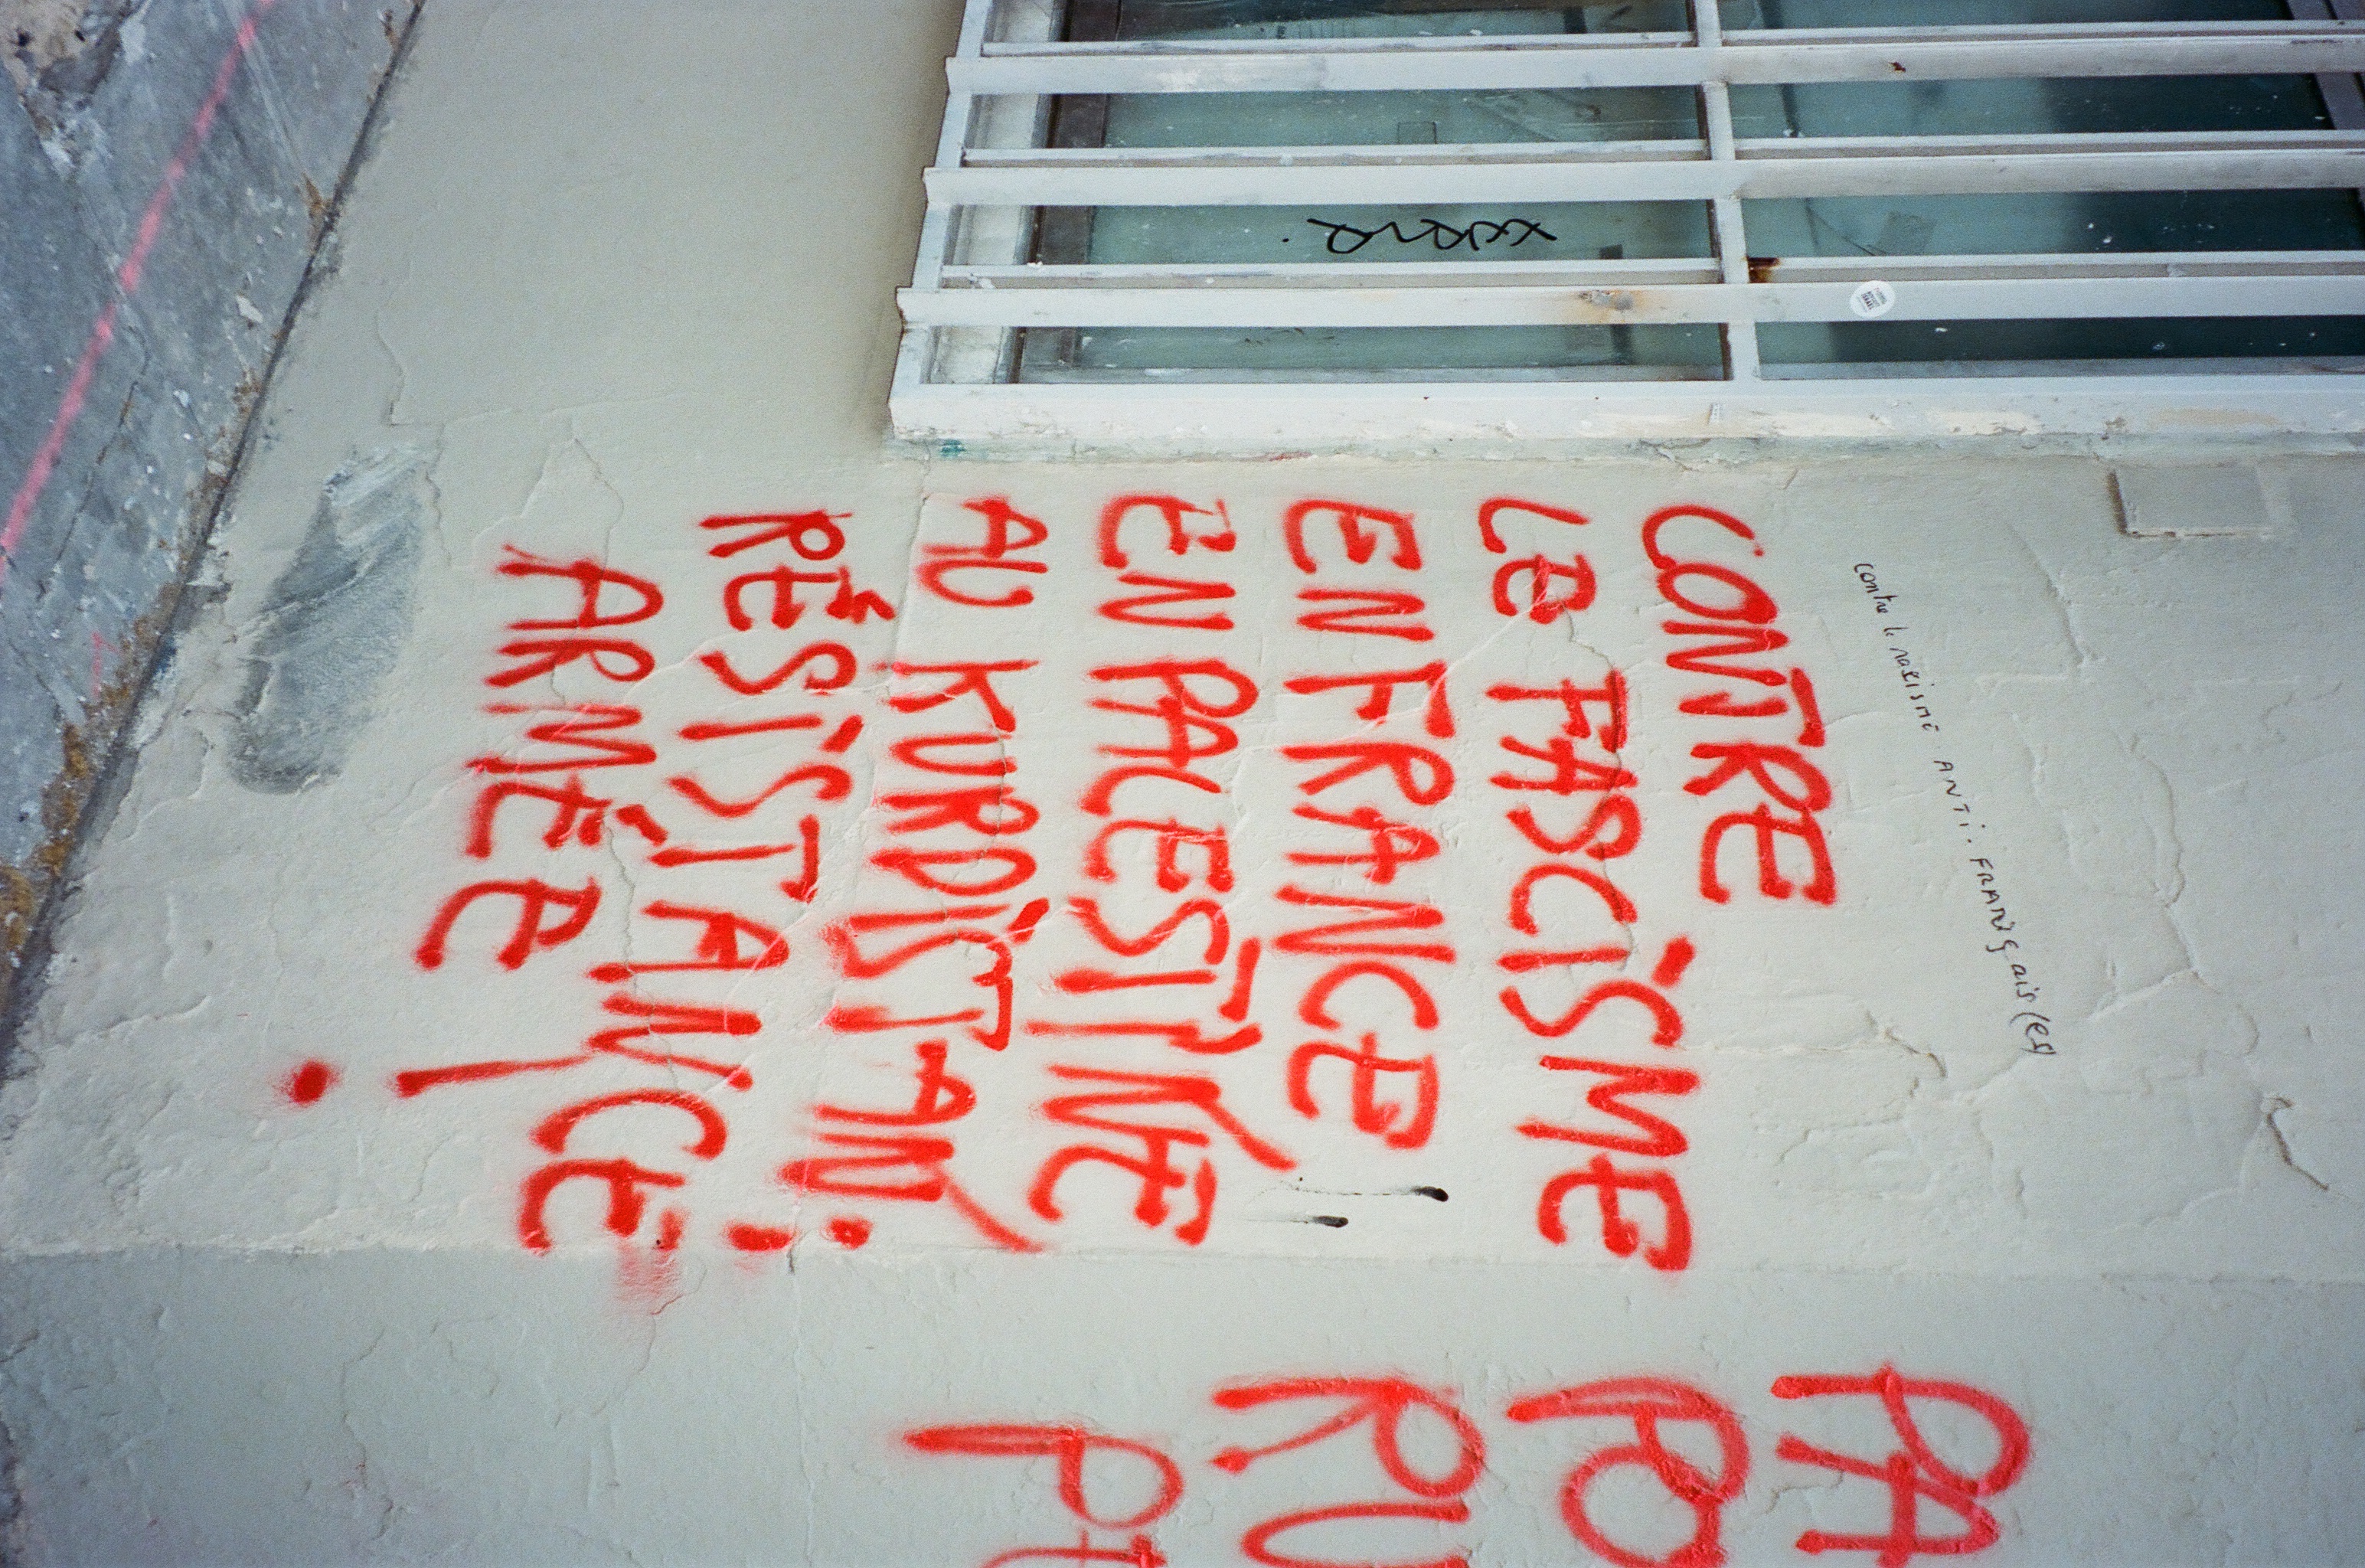 contre le racisme. ANTI. FRANÇais(es)
CONTRE
LE FASCISME
EN FRANCE
EN PALESTINE,
AU KURDISTAN,
RÉSISTANCE
ARMÉE !
PA
PO
RU
PE